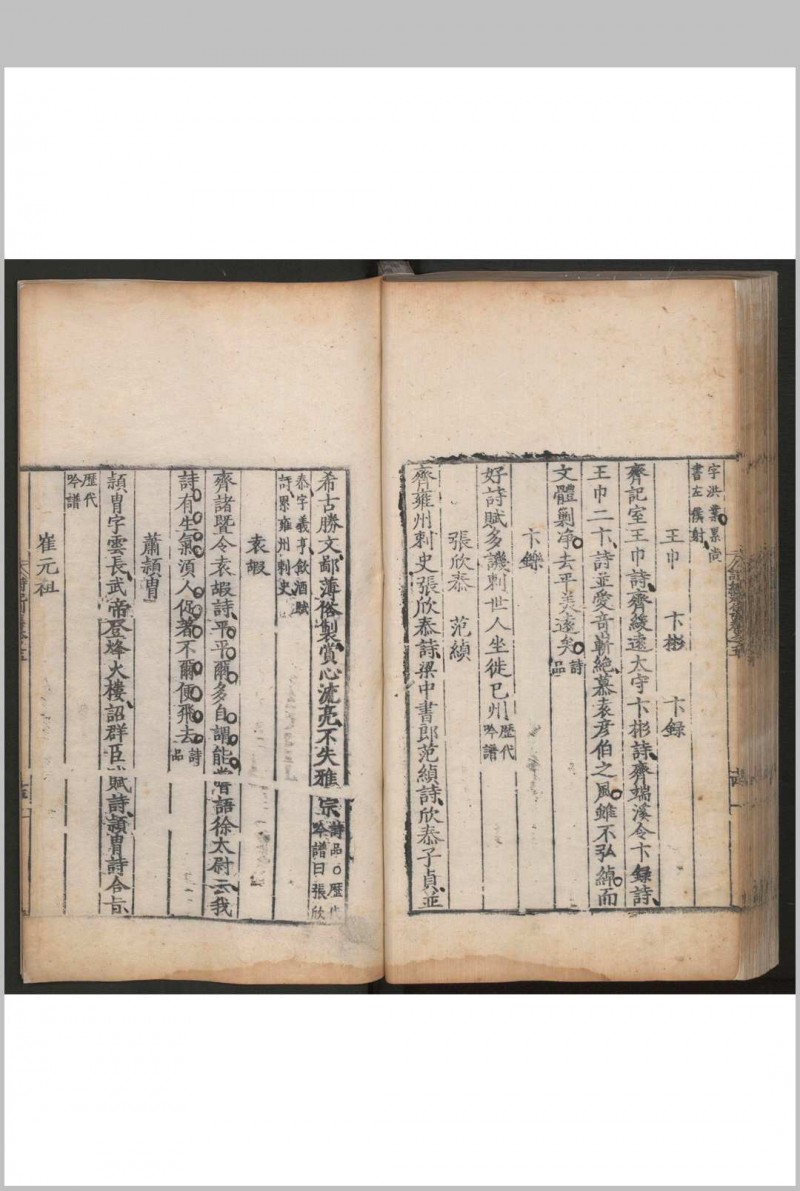 字洪業累尚
書左僕射
王巾 卞彬 卞録
齊記室王巾詩齊綏遠太守卞彬詩齊端溪令卞録詩
王巾二卞詩並愛奇嶄絶慕袁彦伯之風雖不弘綽而
文體勦净去平美遠矣詩品
卞鑠
好詩賦多譏刺世人坐徙巴州歴代吟譜
張欣泰 范縝
齊雍州刺史張欣泰詩梁中書郎范縝詩欣泰子貞並
希古勝文鄙薄俗製賞心流亮不失雅宗詩品○歴代吟譜曰張欣
泰字義亨飲酒賦
詩累雍州刺史
袁嘏
齊諸暨令袁嘏詩平平爾多自謂能嘗語徐太尉云我
詩有生氣須人促著不爾便飛去詩品
蕭頴胄
頴胄字雲長武帝登烽火樓詔群臣賦詩頴胄詩合旨
歴代
吟譜
崔元祖